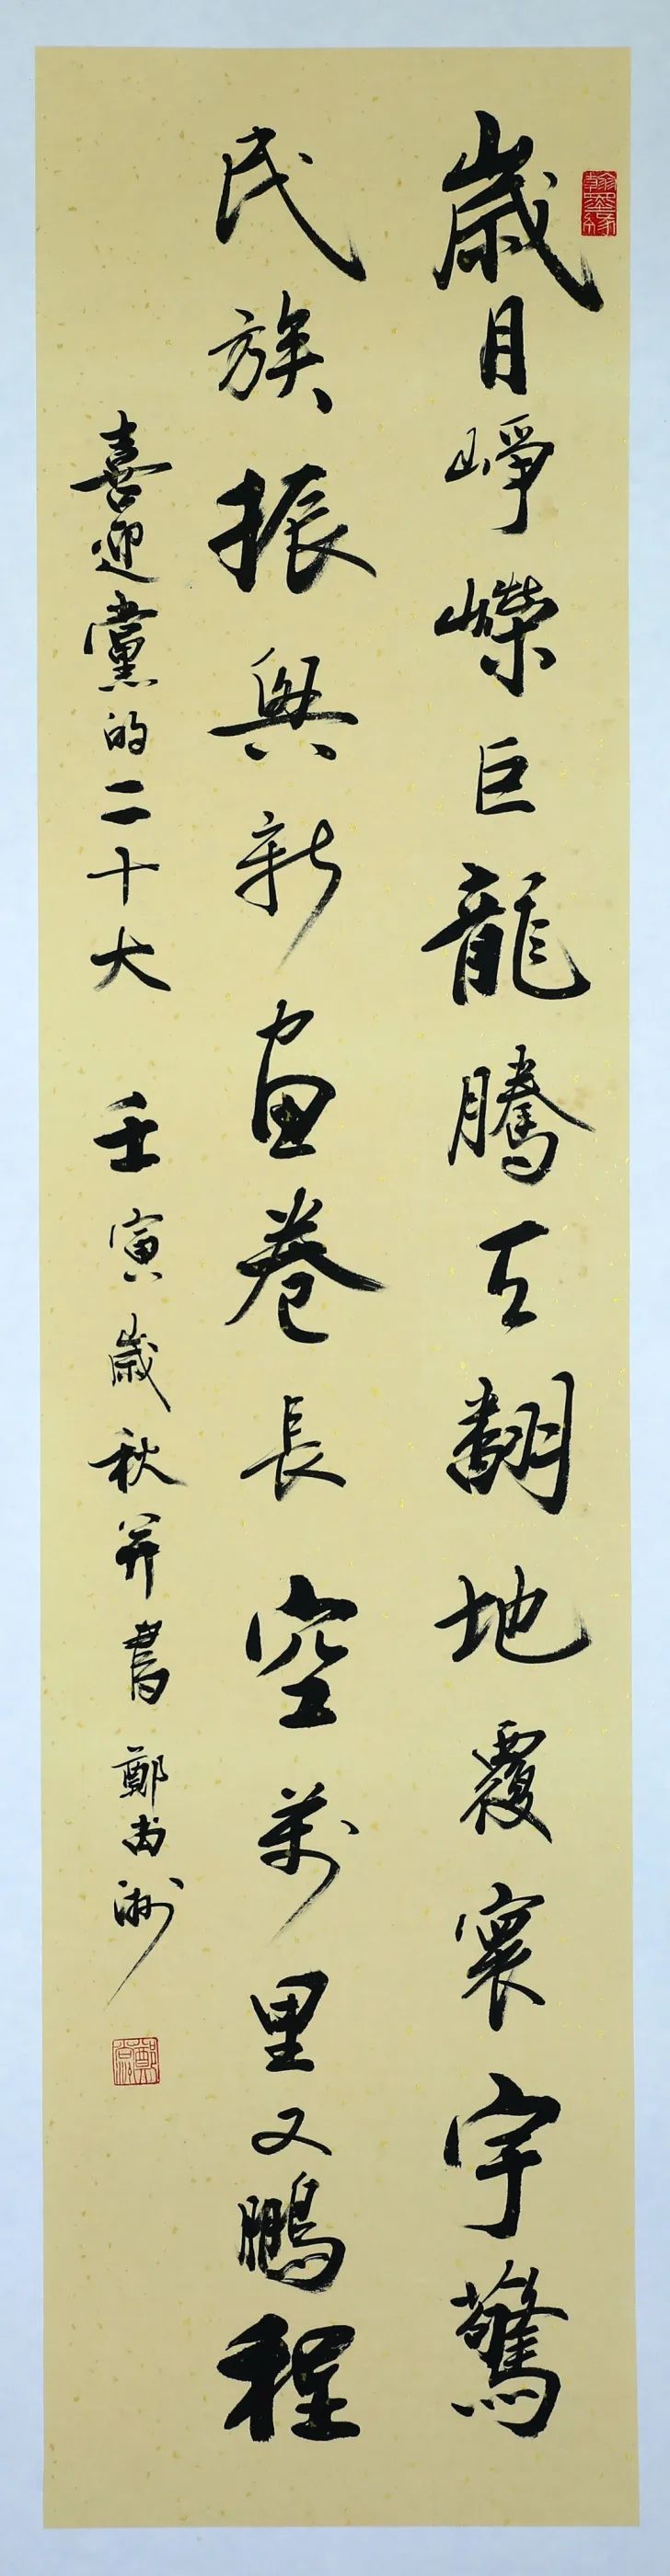 歲月崢嶸巨龍騰天翻地覆寰宇驚
民族振興新畫卷長空萬里又鵬程
喜迎黨的二十大 壬寅歲秋并書 鄭洲